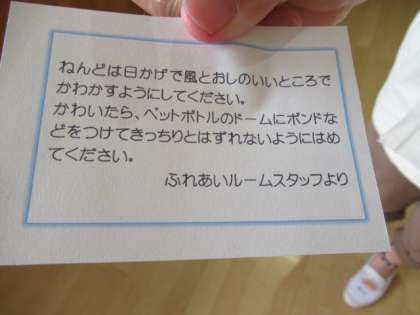 ねんどは日かげで風とおしのいいところで
かわかすようにしてください。
かわいたら、ペットボトルのドームにボンドな
どをつけてきっちりとはずれないようにはめ
てください。
ふれあいルームスタッフより